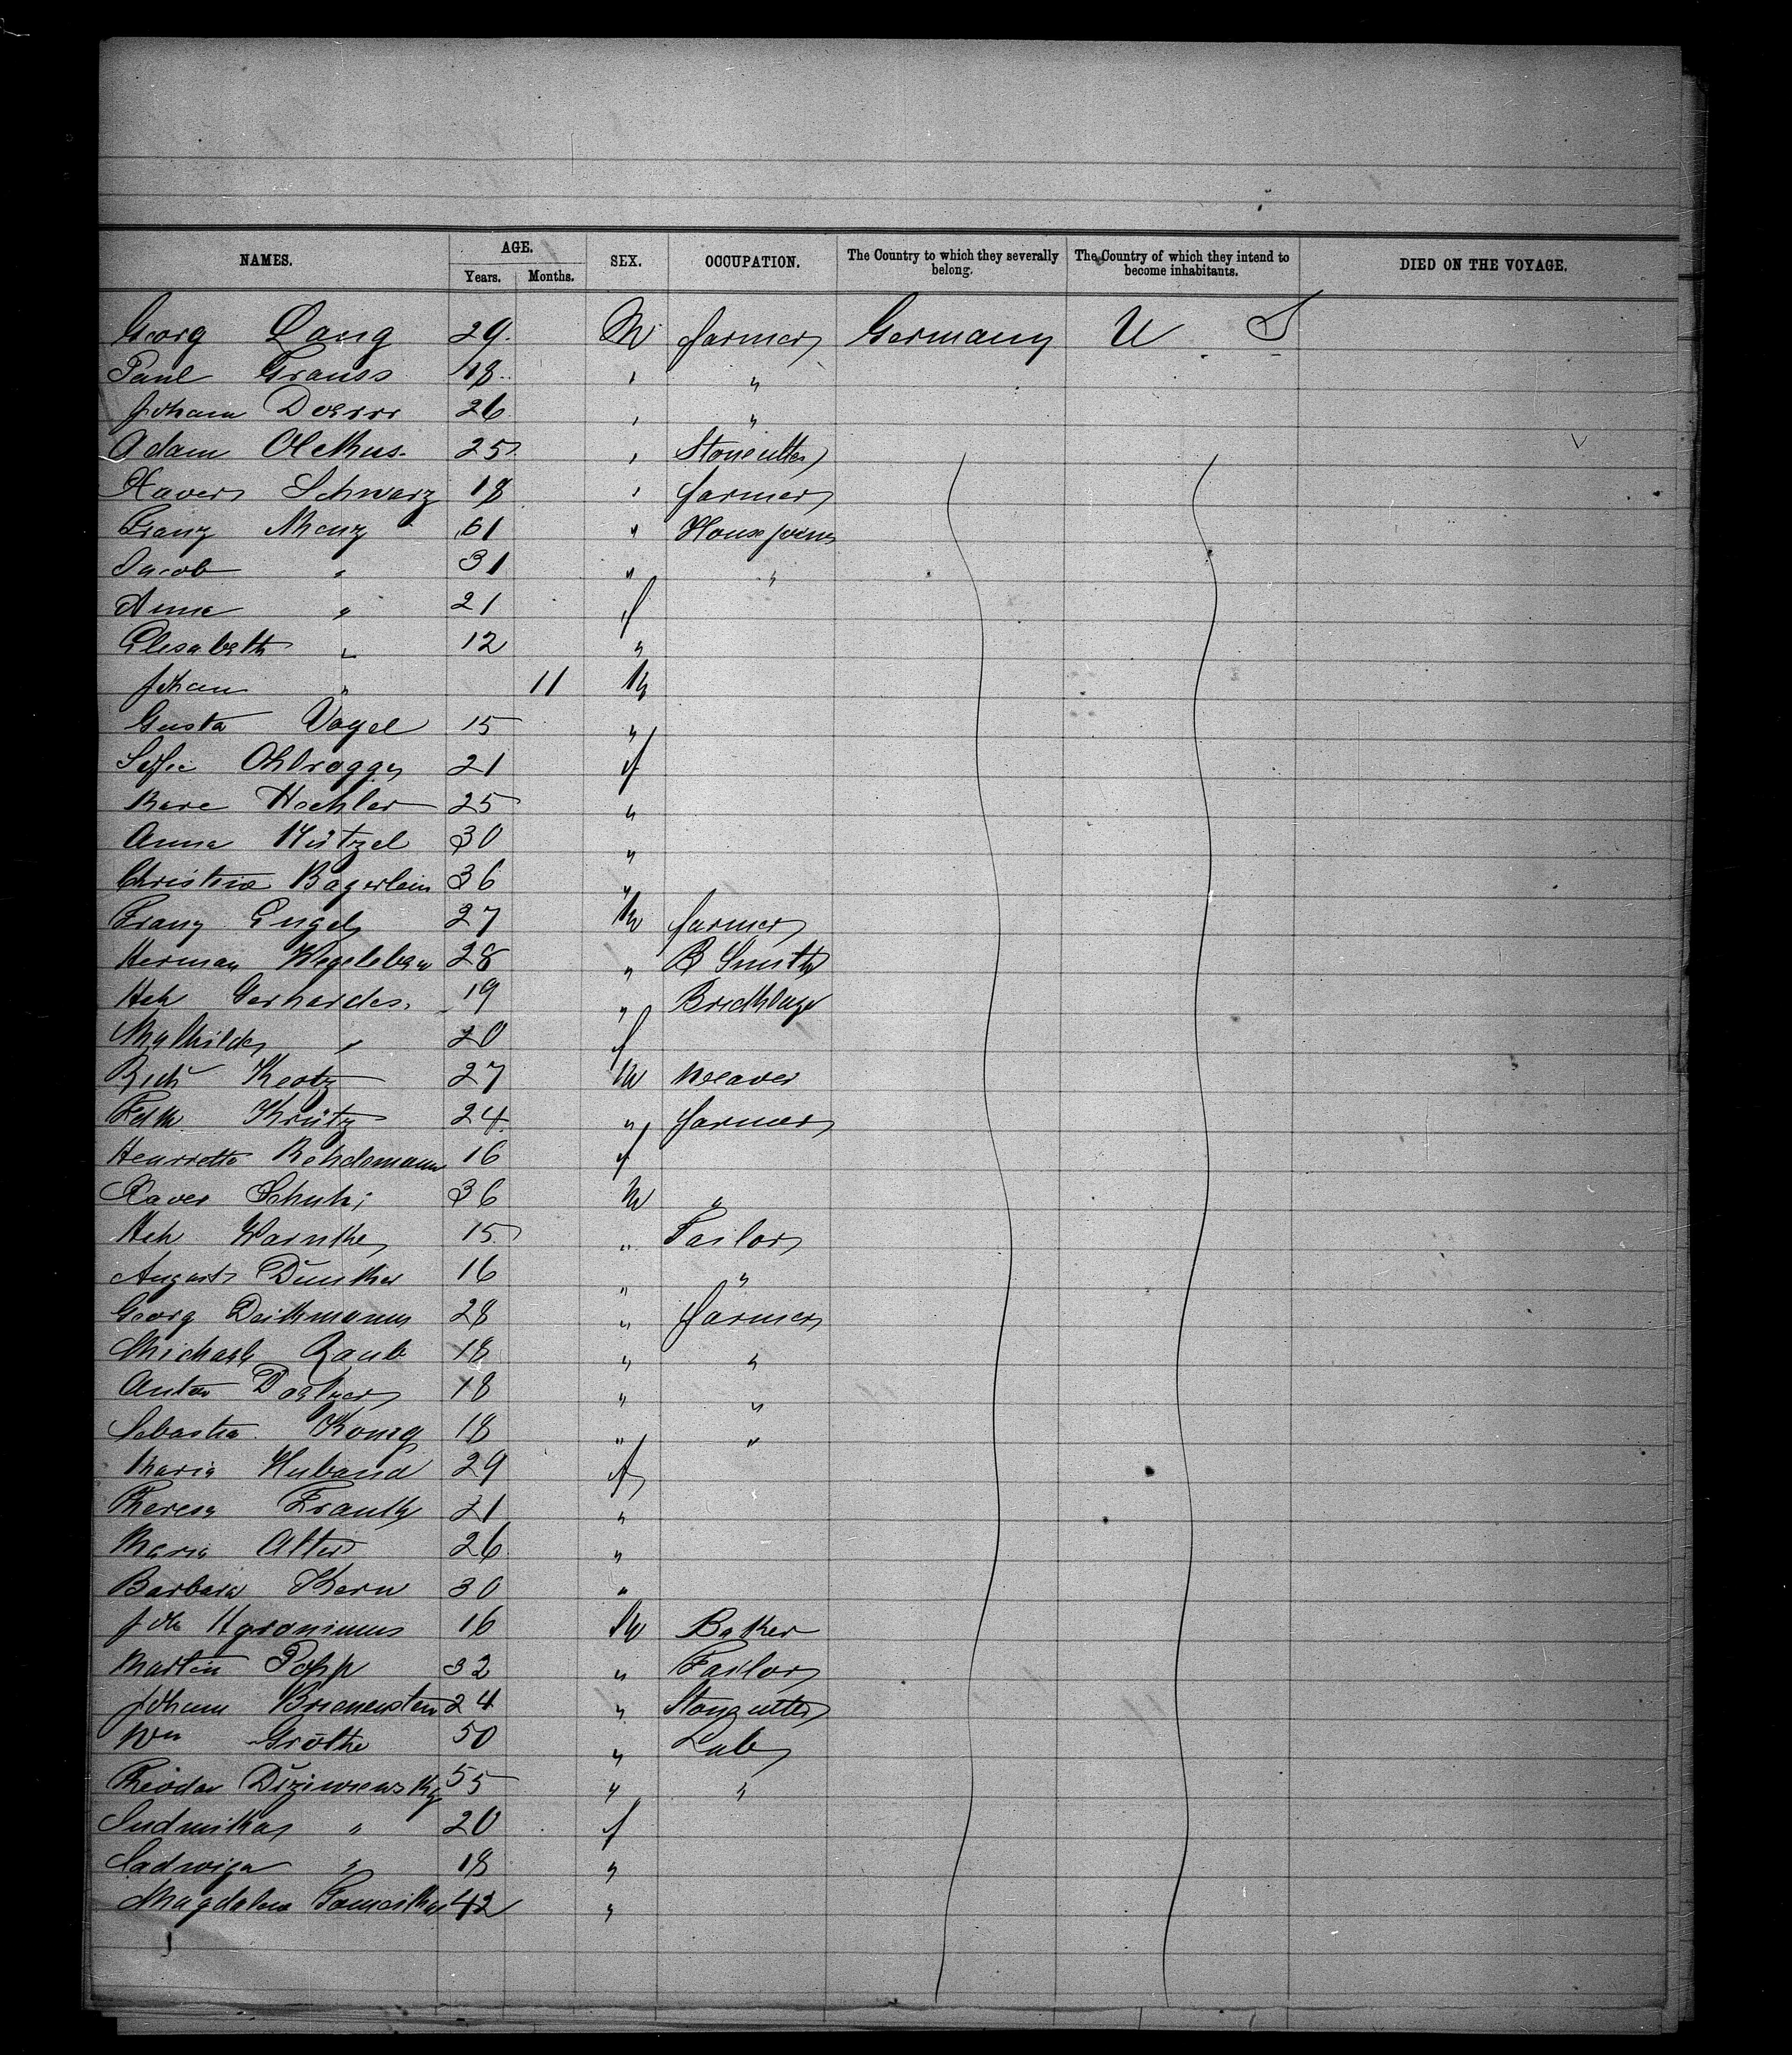 NAMES. AGE. SEX. OCCUPATION. The Country to which they severally belong. The Country of which they intend to become inhabitants. DIED ON THE VOYAGE.
Years. Months.
Georg Lang 29. M farmer Germany U S
Paul Grauss 18 " "
Johann Doerr 26 " "
Adam 25 " Stonecutter
Xaver Schwarz 18 " farmer
Franz Menz 61 " House joiner
Jacob " 31 " "
Anna " 21 f
Elesabeth " 12 "
Johan " 11 M
Gusta Vogel 15 "
Sofie 21 f
25 "
Anna 30 "
Christine Bagerlein 36 "
Franz Engel 27 M farmer
Herman Wegeleben 28 " B Smith
Hch Gerhardes. 19 "
Mathilde " 20 f
Rich 27 M Weaver
Fdk Krütz 24. " farmer
Henrrette 16 f
Xaver 36 M "
Hch Warnke 15 " Tailor
August Dunker 16 " "
Georg Deikmann 28 " farmer
Michael Raub 18 " "
Anton 18 " "
Sebastia König 18 " "
Maria Huband 29 f
Theresa Frank 21 "
Maria Alter 26 "
Barbara Kern 30 "
Joh Hyronimus 16 M Baker
Martin Popp 32 " Tailor
Johann 24 " Stonecutter
Wm Gröthe 50 " Lab
Theodor 55 " "
Ludmika " 20 f
Hadwiga " 18 "
Magdalena 42 "